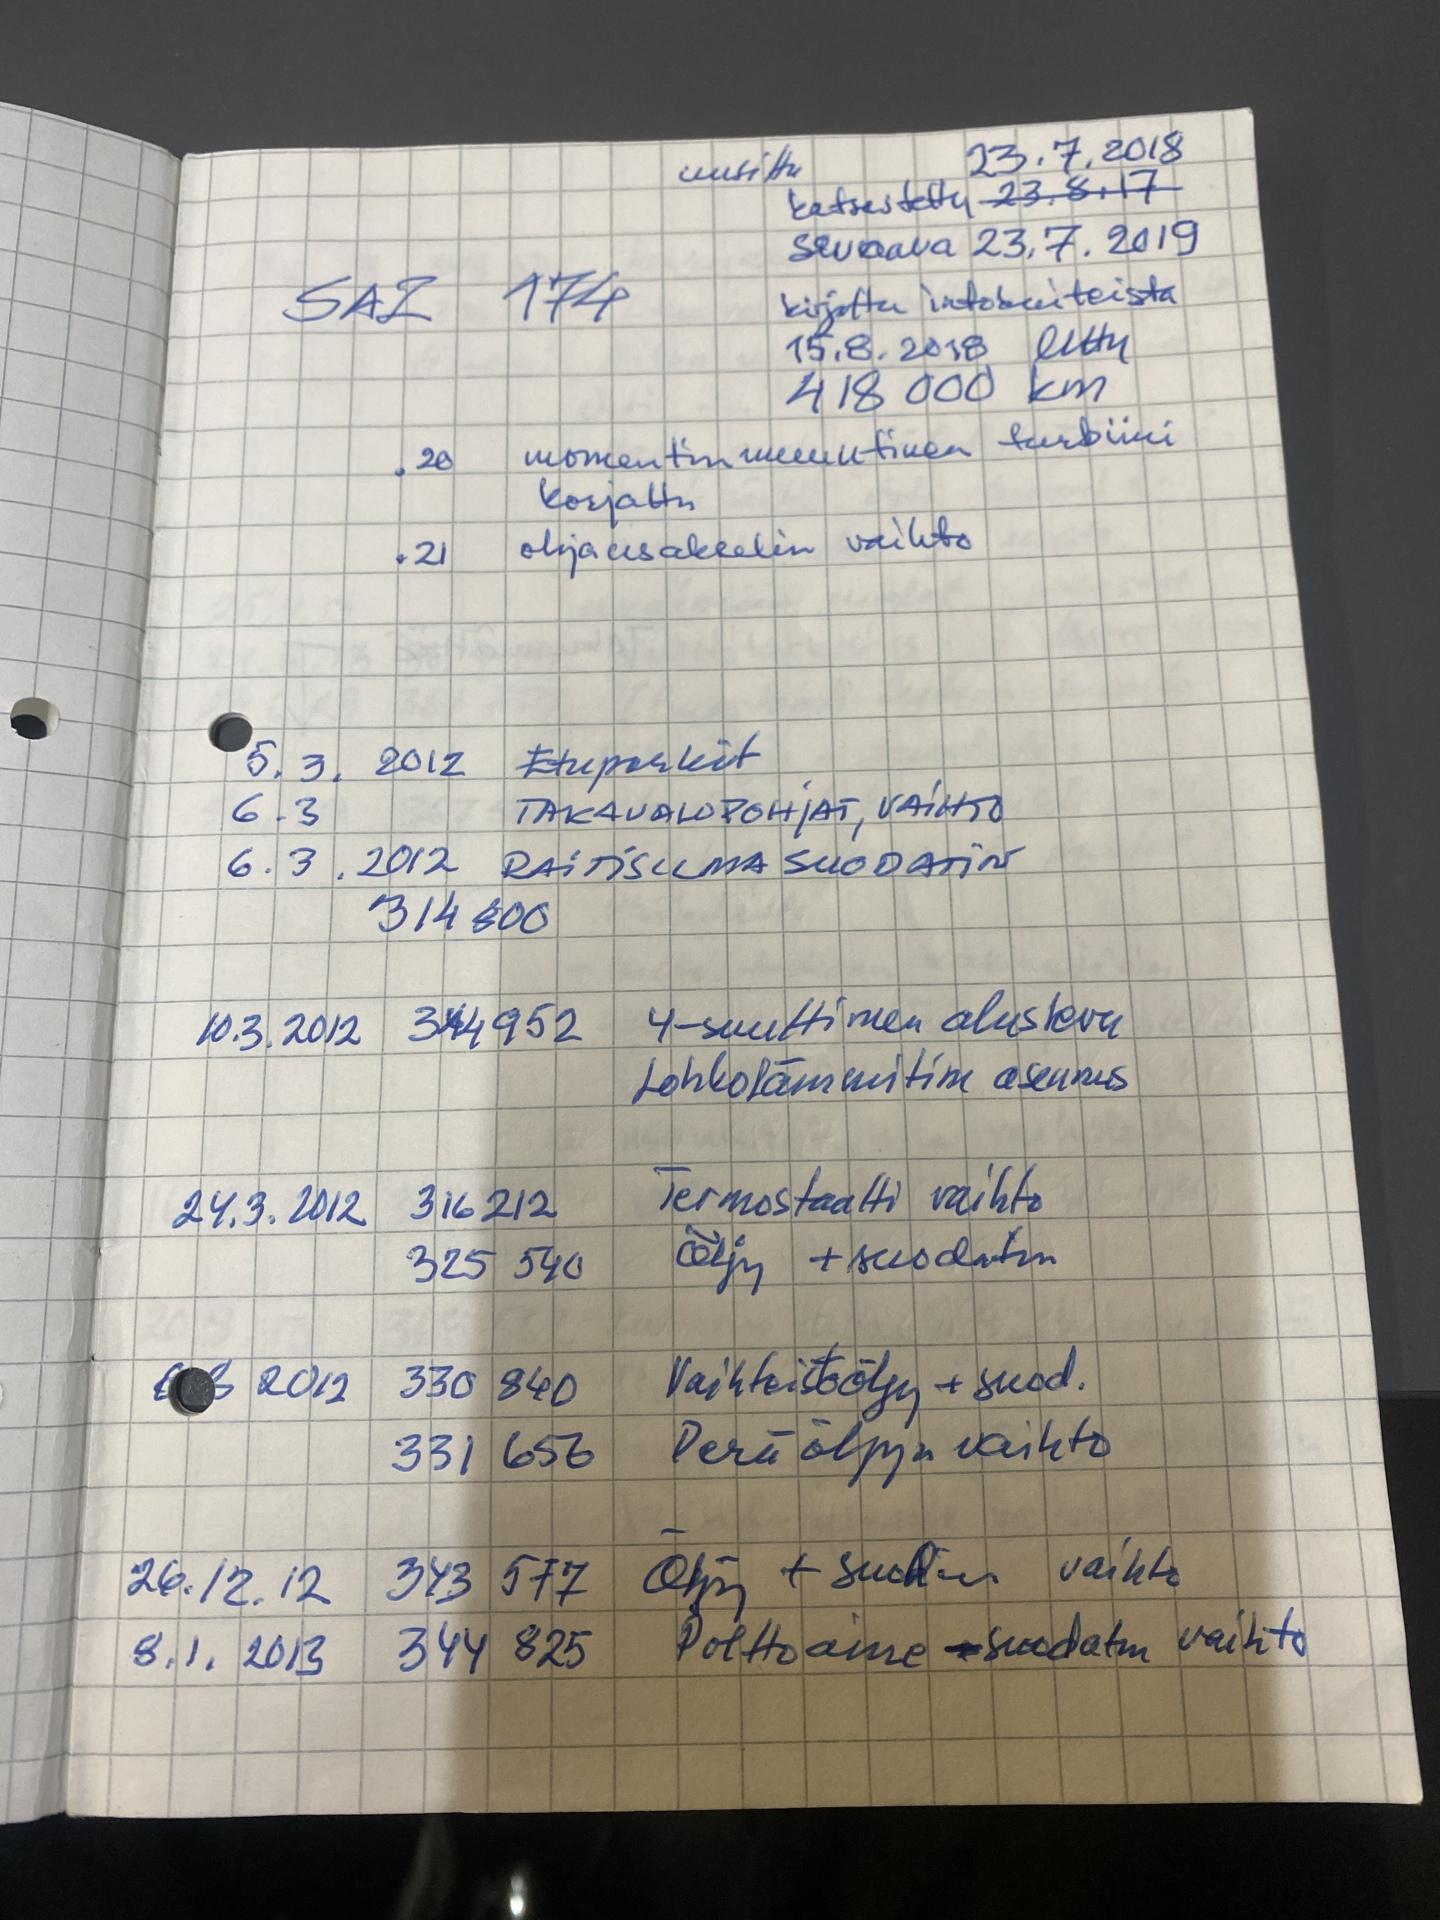 uusittu 23.7.2018
katsastettu 23.8.17
seuraava 23.7.2019
SAZ 174
kirjattu
15.8.2018
418 000 km
.20 momentinmuuntimen turbiini
korjattu
.21 ohjausakselin vaihto
5.3. 2012 Etuparkit
6.3 TAKAVALOPOHJAT, VAIHTO
6.3.2012 RAITISILMASUODATIN
314 800
10.3.2012 314 952 4-suuttimen
Lohkolämmitim asennus
24.3.2012 316 212 Termostaatti vaihto
325 540 Öljy + suodatin
2012 330 840 Vaihteistoöljy + suod.
331 656 Perä öljyn vaihto
26.12.12 343 577 Öljy + vaihto
8.1. 2013 344 825 Polttoaine suodatin vaihto